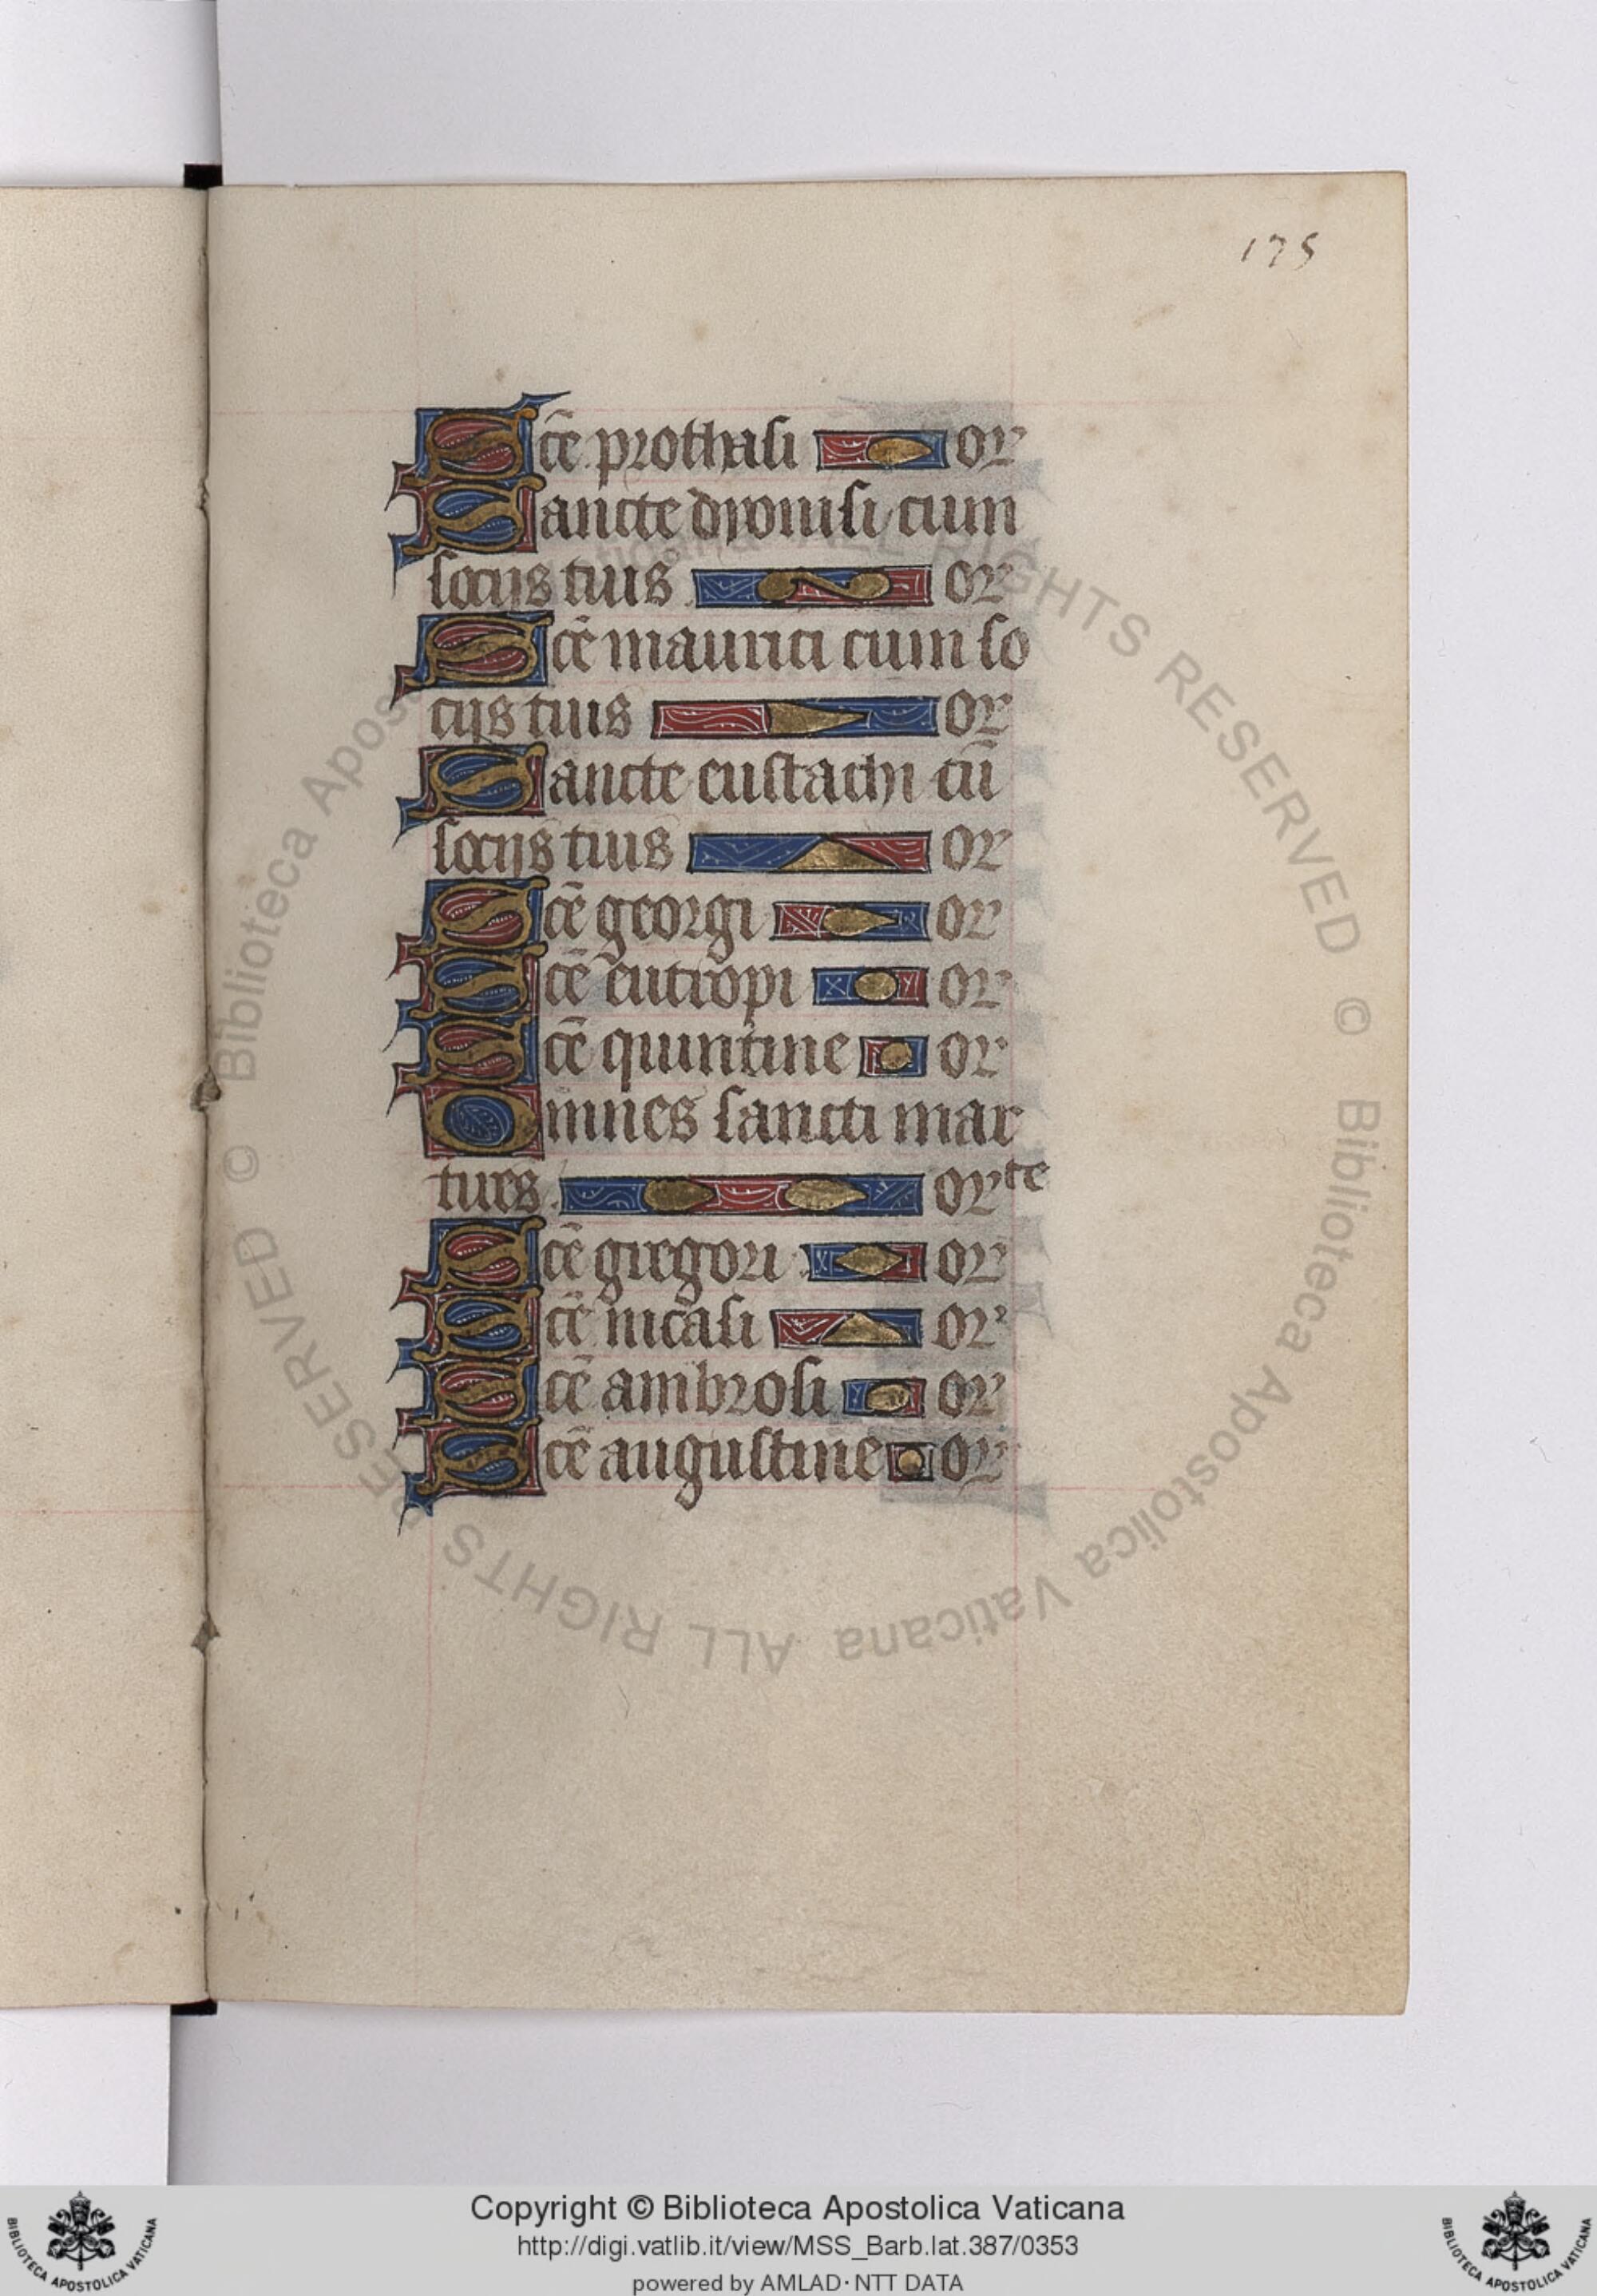 175
Sc̄e prothasi or
Sancte dyonisi cum
socijs tuis or
Sc̄e maurici cum so
cijs tuis or
Sancte eustachi cū
socijs tuis or
Sc̄e georgi or
Sc̄e eutropi or
Sc̄e quintine or
Omnes sancti mar
tires orte
Sc̄e gregori or
Sc̄e nicasi or
Sc̄e ambrosi or
Sc̄e augustine or
© Biblioteca Apostolica Vaticana ALL RIGHTS RESERVED © Biblioteca Apostolica Vaticana ALL RIGHTS RESERVED
Copyright © Biblioteca Apostolica Vaticana
http://digi.vatlib.it/view/MSS_Barb.lat.387/0353
powered by AMLAD·NTT DATA
BIBLIOTECA APOSTOLICA VATICANA
BIBLIOTECA APOSTOLICA VATICANA